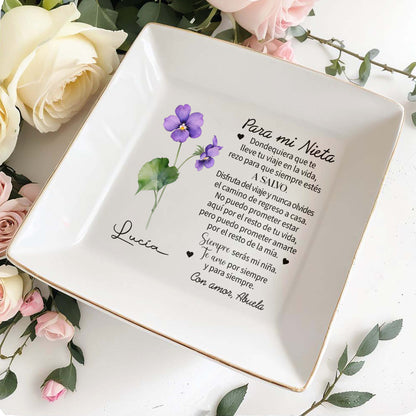 Para mi Nieta
Dondequiera que te
lleve tu viaje en la vida,
rezo para que siempre estés
A SALVO
Disfruta del viaje y nunca olvides
el camino de regreso a casa.
No puedo prometer estar
aquí por el resto de tu vida,
pero puedo prometer amarte
por el resto de la mía.
Siempre serás mi niña.
Te amo por siempre
y para siempre.
Con amor, Abuela
Lucía